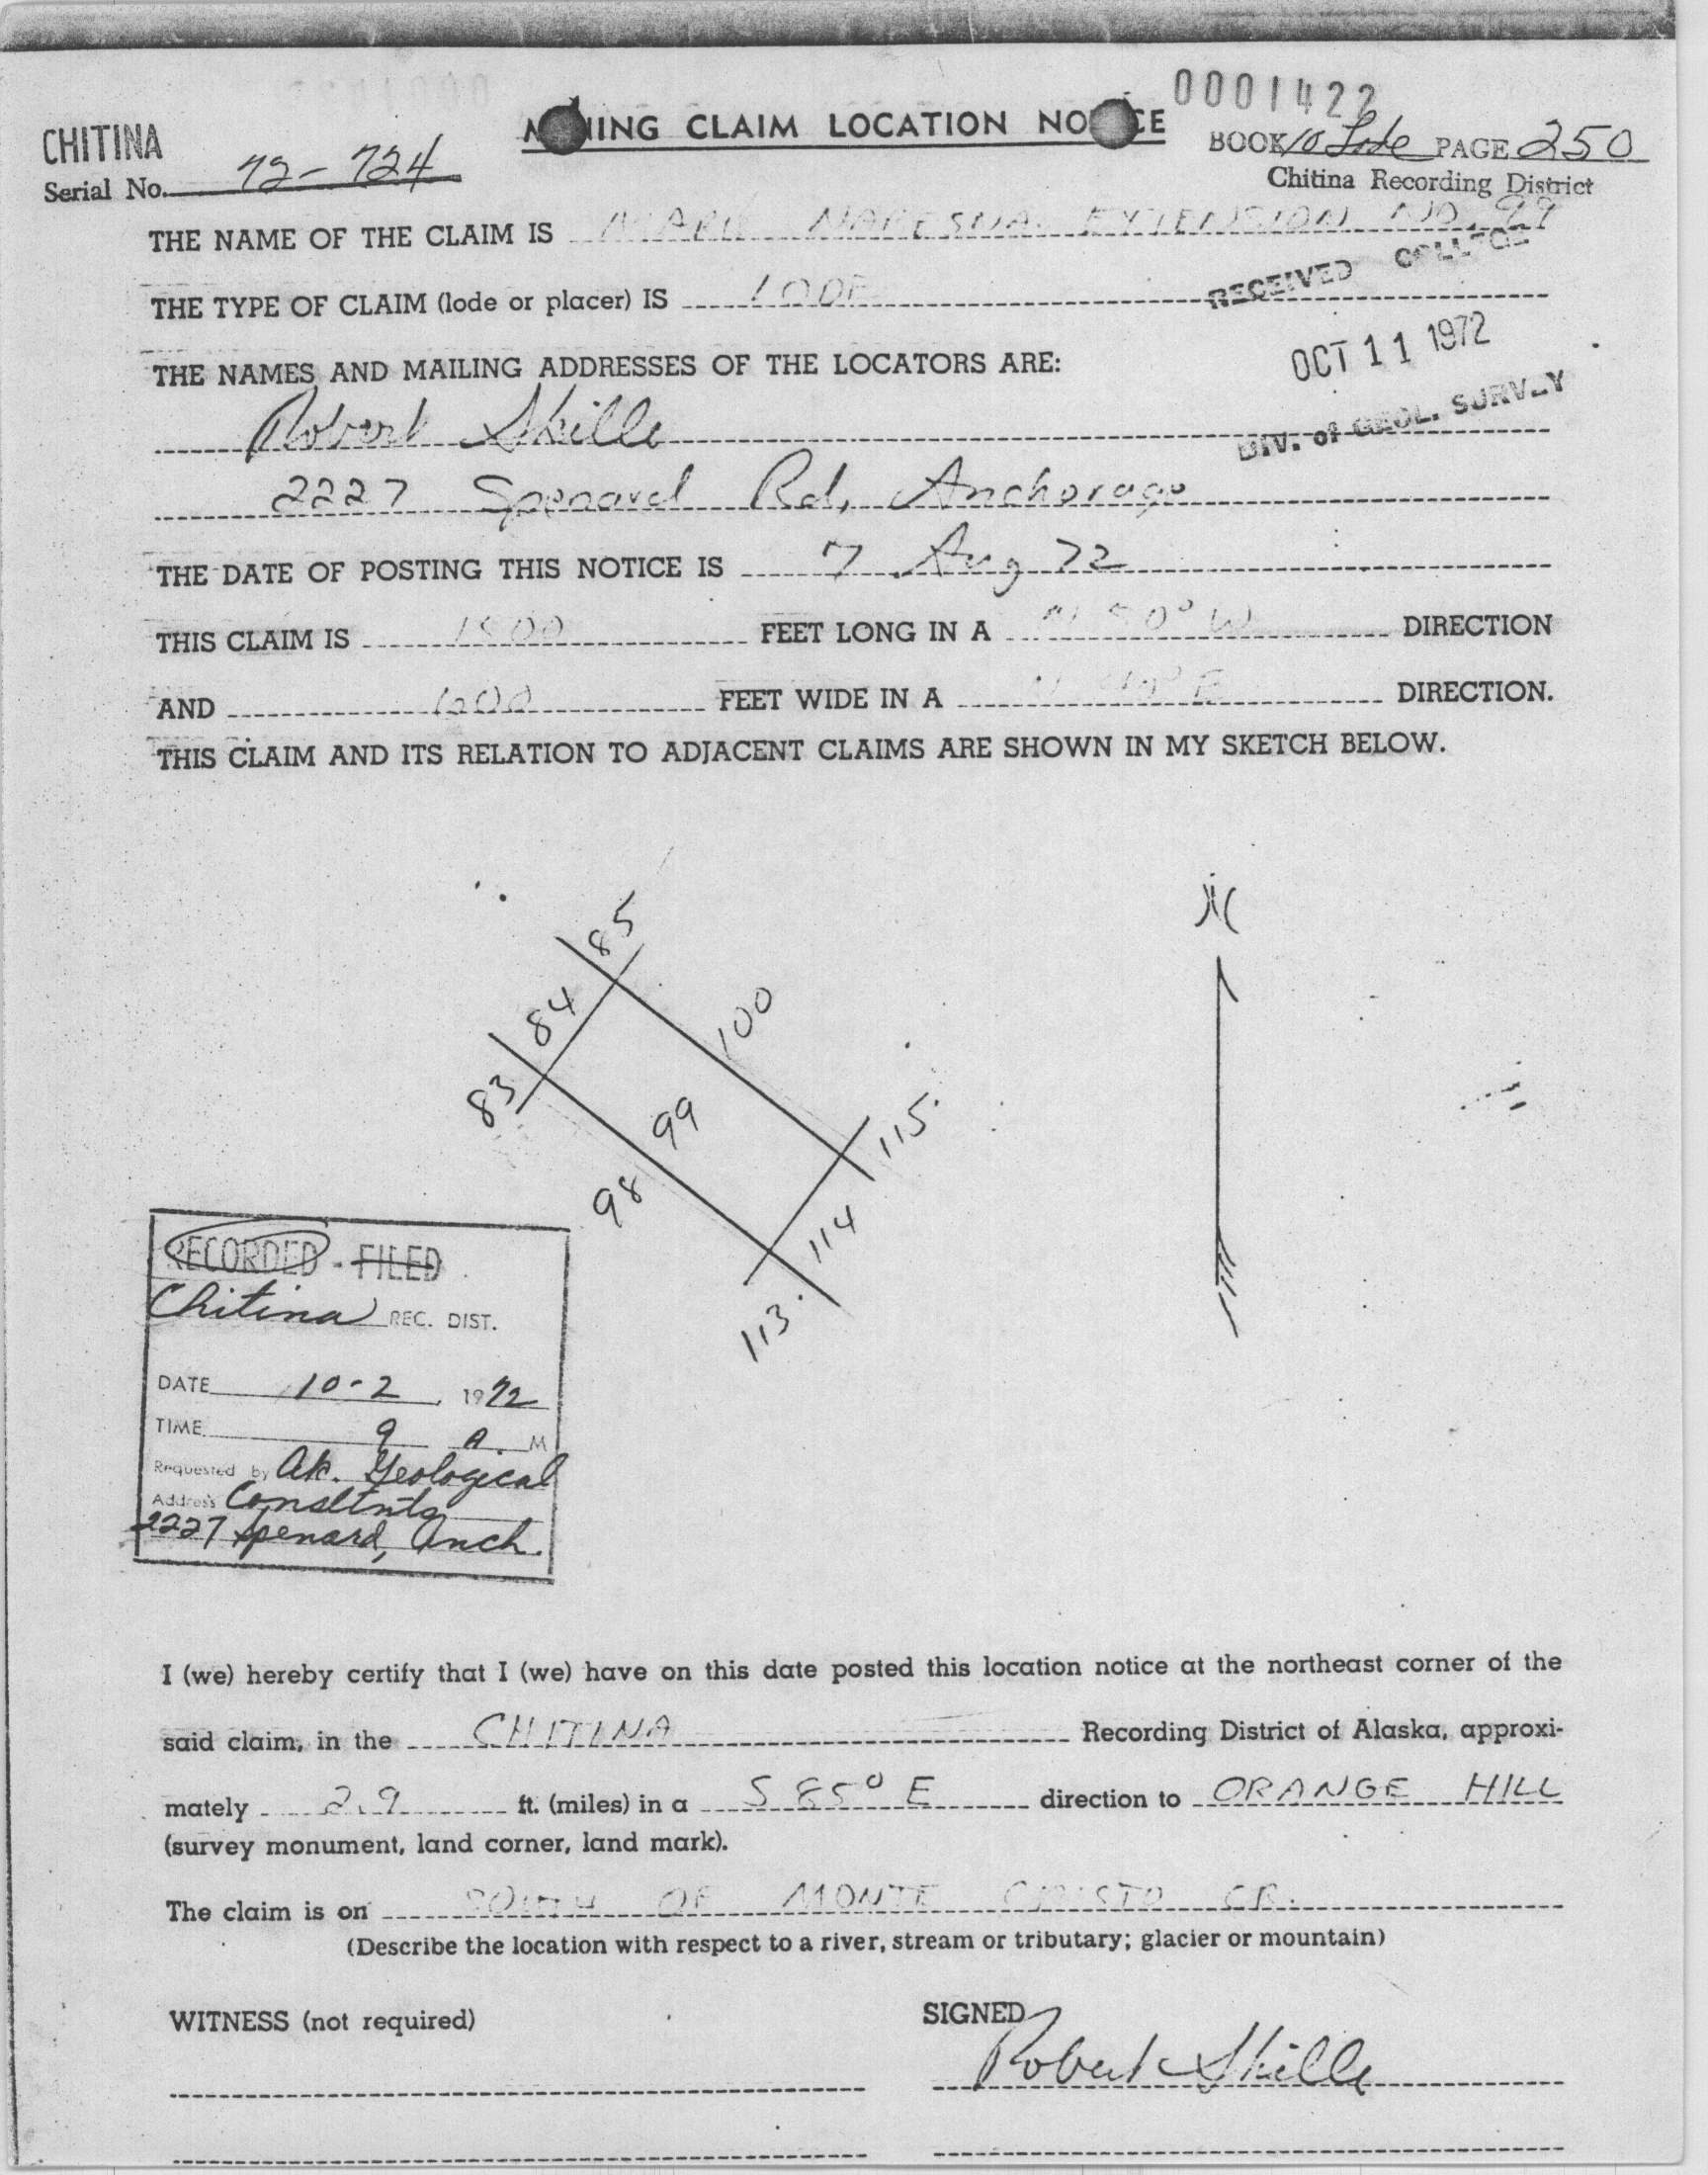 0001422
CHITINA
MINING CLAIM LOCATION NOTICE
BOOK 10 Lode PAGE 250
Serial No. 72-724
Chitina Recording District
THE NAME OF THE CLAIM IS NABESNA EXTENSION NO. 99
RECEIVED COLLEGE
THE TYPE OF CLAIM (lode or placer) IS LODE
OCT 11 1972
THE NAMES AND MAILING ADDRESSES OF THE LOCATORS ARE:
DIV. of GEOL. SURVEY
Robert Skille
2227 Spenard Rd, Anchorage
THE DATE OF POSTING THIS NOTICE IS 7 Aug 72
THIS CLAIM IS 1500 FEET LONG IN A N 50° W DIRECTION
AND 600 FEET WIDE IN A N 40° E DIRECTION.
THIS CLAIM AND ITS RELATION TO ADJACENT CLAIMS ARE SHOWN IN MY SKETCH BELOW.
N
85
84
100
83
99
115
98
114
113
RECORDED - FILED
Chitina REC. DIST.
DATE 10-2, 1972
TIME 9 A. M
Requested by Ak. Geological
Address Consltnts
2227 Spenard, Anch.
I (we) hereby certify that I (we) have on this date posted this location notice at the northeast corner of the
said claim, in the CHITINA Recording District of Alaska, approxi-
mately 2.9 ft. (miles) in a S 85° E direction to ORANGE HILL
(survey monument, land corner, land mark).
The claim is on SOUTH OF MONTE CRISTO CR.
(Describe the location with respect to a river, stream or tributary; glacier or mountain)
WITNESS (not required)
SIGNED
Robert Skille